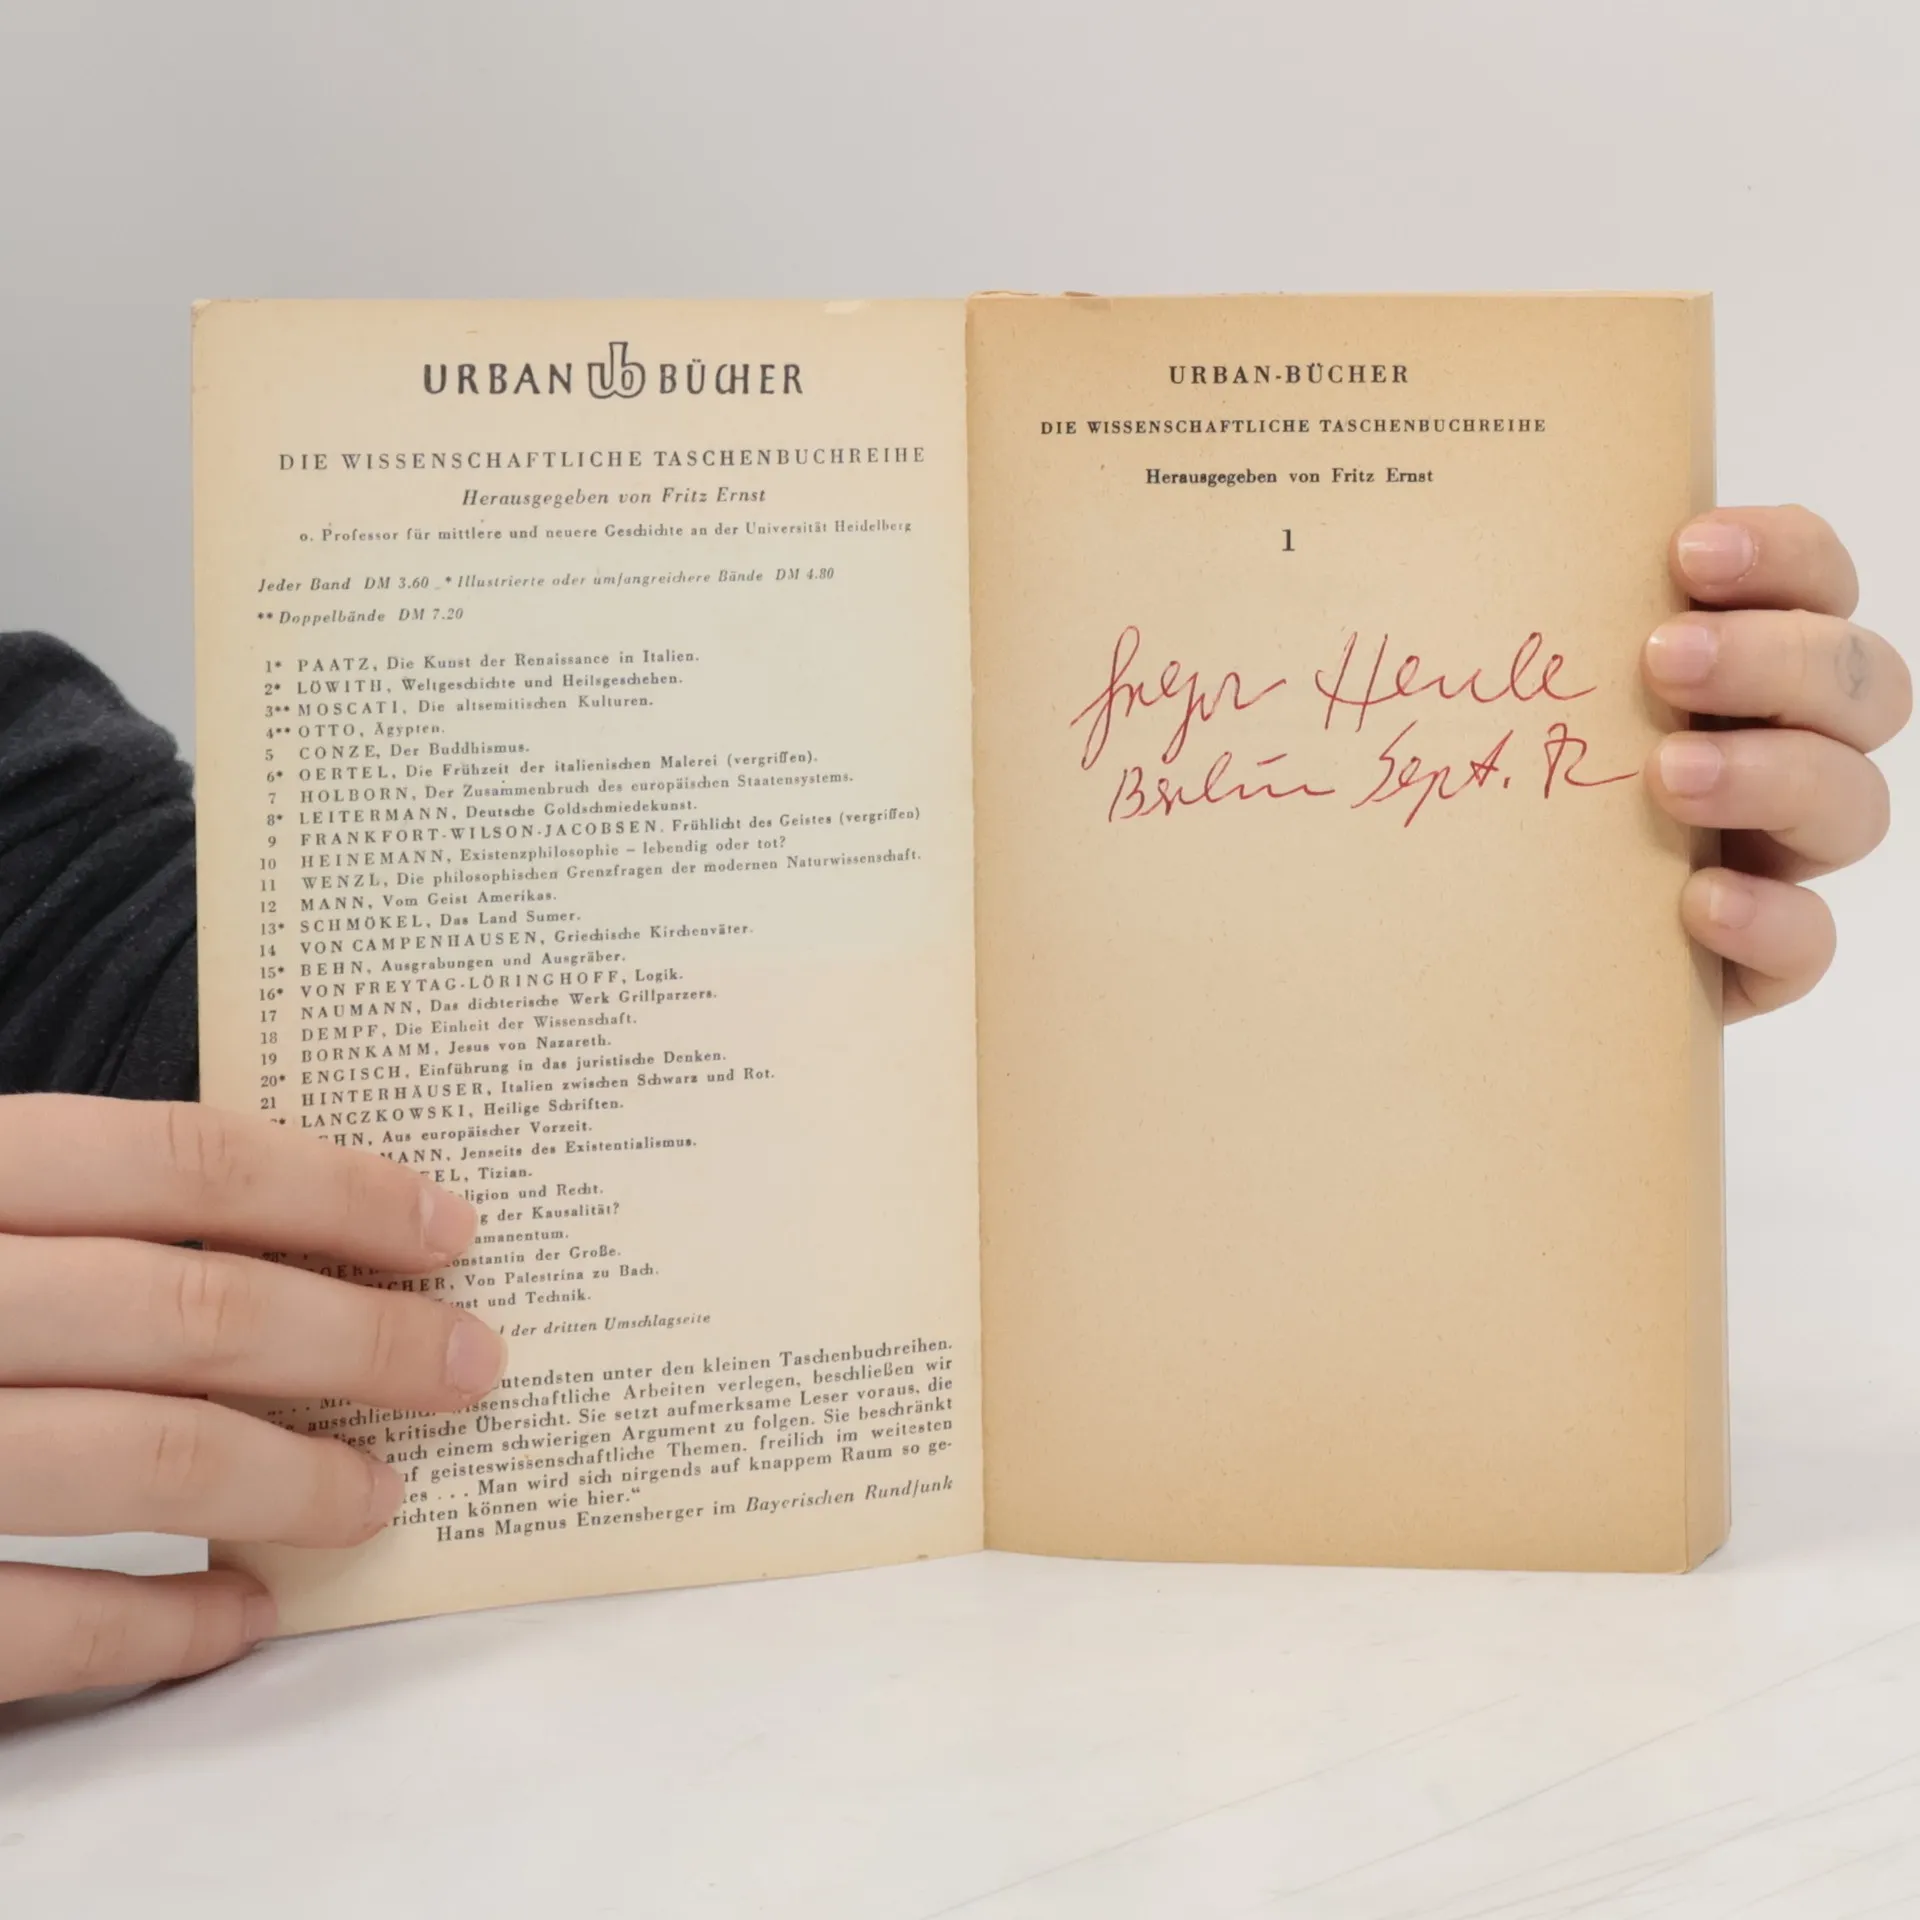 URBAN ub BÜCHER
DIE WISSENSCHAFTLICHE TASCHENBUCHREIHE
Herausgegeben von Fritz Ernst
o. Professor für mittlere und neuere Geschichte an der Universität Heidelberg
Jeder Band DM 3.60 * Illustrierte oder umfangreichere Bände DM 4.80
** Doppelbände DM 7.20
1* PAATZ, Die Kunst der Renaissance in Italien.
2* LÖWITH, Weltgeschichte und Heilsgeschehen.
3** MOSCATI, Die altsemitischen Kulturen.
4** OTTO, Ägypten.
5 CONZE, Der Buddhismus.
6* OERTEL, Die Frühzeit der italienischen Malerei (vergriffen).
7 HOLBORN, Der Zusammenbruch des europäischen Staatensystems.
8* LEITERMANN, Deutsche Goldschmiedekunst.
9 FRANKFORT-WILSON-JACOBSEN, Frühlicht des Geistes (vergriffen)
10 HEINEMANN, Existenzphilosophie – lebendig oder tot?
11 WENZL, Die philosophischen Grenzfragen der modernen Naturwissenschaft.
12 MANN, Vom Geist Amerikas.
13* SCHMÖKEL, Das Land Sumer.
14 VON CAMPENHAUSEN, Griechische Kirchenväter.
15* BEHN, Ausgrabungen und Ausgräber.
16* VON FREYTAG-LÖRINGHOFF, Logik.
17 NAUMANN, Das dichterische Werk Grillparzers.
18 DEMPF, Die Einheit der Wissenschaft.
19 BORNKAMM, Jesus von Nazareth.
20* ENGISCH, Einführung in das juristische Denken.
21 HINTERHÄUSER, Italien zwischen Schwarz und Rot.
* LANCZKOWSKI, Heilige Schriften.
HN, Aus europäischer Vorzeit.
MANN, Jenseits des Existentialismus.
EL, Tizian.
ligion und Recht.
g der Kausalität?
amanentum.
onstantin der Große.
ICHER, Von Palestrina zu Bach.
nst und Technik.
der dritten Umschlagseite
utendsten unter den kleinen Taschenbuchreihen.
issenschaftliche Arbeiten verlegen, beschließen wir
diese kritische Übersicht. Sie setzt aufmerksame Leser voraus, die
auch einem schwierigen Argument zu folgen. Sie beschränkt
uf geisteswissenschaftliche Themen, freilich im weitesten
es ... Man wird sich nirgends auf knappem Raum so ge-
richten können wie hier."
Hans Magnus Enzensberger im Bayerischen Rundfunk
URBAN-BÜCHER
DIE WISSENSCHAFTLICHE TASCHENBUCHREIHE
Herausgegeben von Fritz Ernst
1
Gregor Henle
Berlin Sept. 72